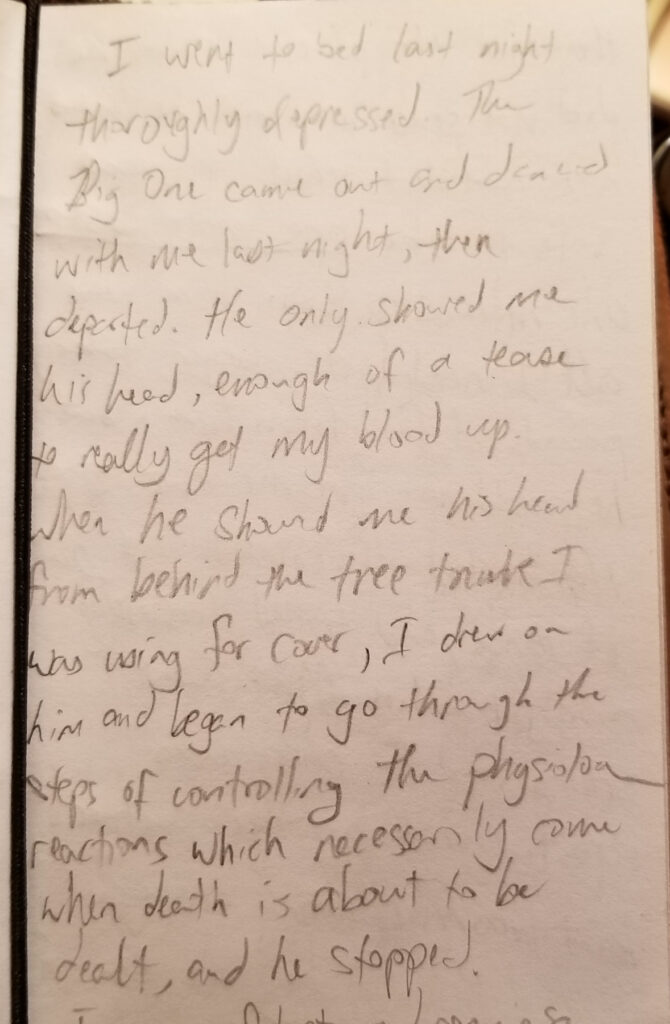 I went to bed last night
thoroughly depressed. The
Big One came out and danced
with me last night, then
departed. He only showed me
his head, enough of a tease
to really get my blood up.
When he showed me his head
from behind the tree trunk I
was using for cover, I drew on
him and began to go through the
steps of controlling the
reactions which necessarily come
when death is about to be
dealt, and he stopped.
I